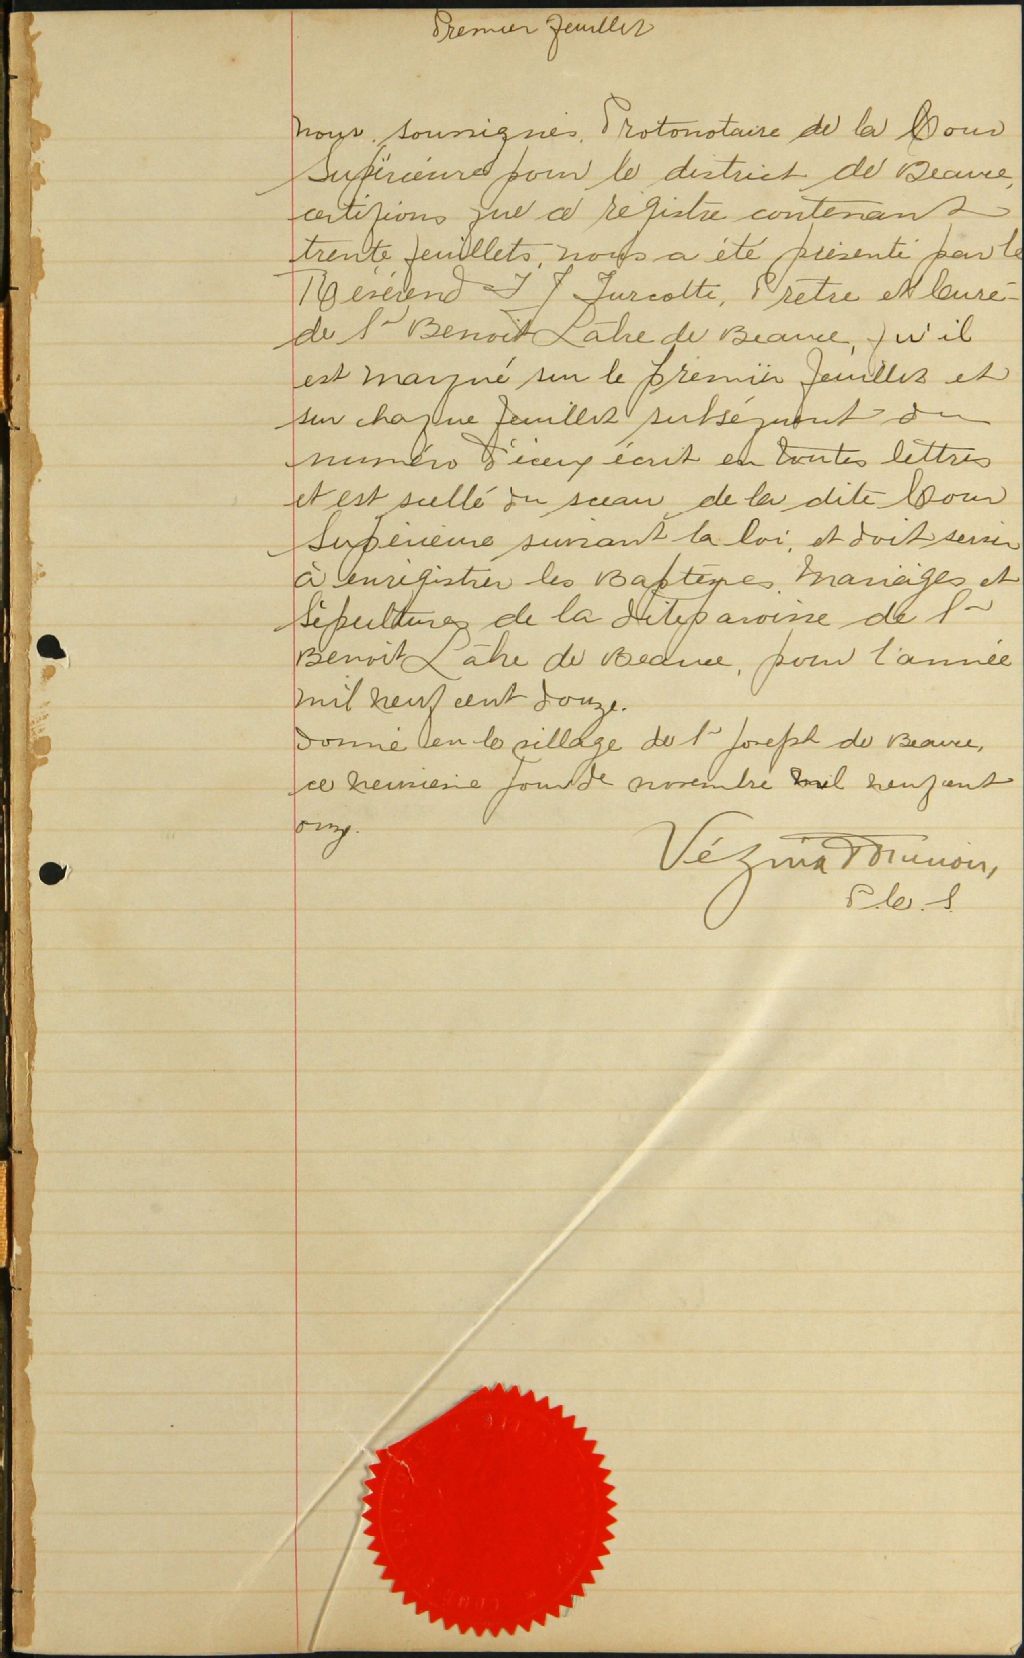 Premier feuillet
Nous, soussignés, Protonotaire de la Cour
Supérieure pour le district de Beauce,
certifions que ce registre contenant
trente feuillets, nous a été présenté par le
Révérend J Turcotte, Prêtre et Curé
de St Benoit Labre de Beauce, qu'il
est marqué sur le premier feuillet et
sur chaque feuillet subséquent du
numéro d'iceux écrit en toutes lettres
et est scellé du sceau de la dite Cour
Supérieure suivant la loi, et doit servir
à enrégistrer les Baptêmes, Mariages et
Sépultures de la dite paroisse de St
Benoit Labre de Beauce, pour l'année
mil neuf cent douze.
Donné en le village de St Joseph de Beauce,
ce neuvième jour de novembre mil neuf cent
onze.
Vézina
P. C. S.